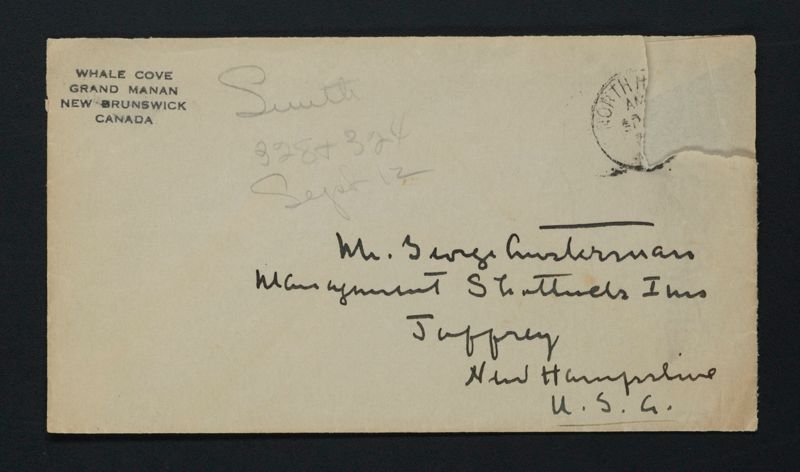 WHALE COVE
GRAND MANAN
NEW BRUNSWICK
CANADA
Smith
328 + 324
Sept 12
NORTH H
AM
Mr. George Austerman
Management Shattucks Inn
Jaffrey
New Hampshire
U. S. A.